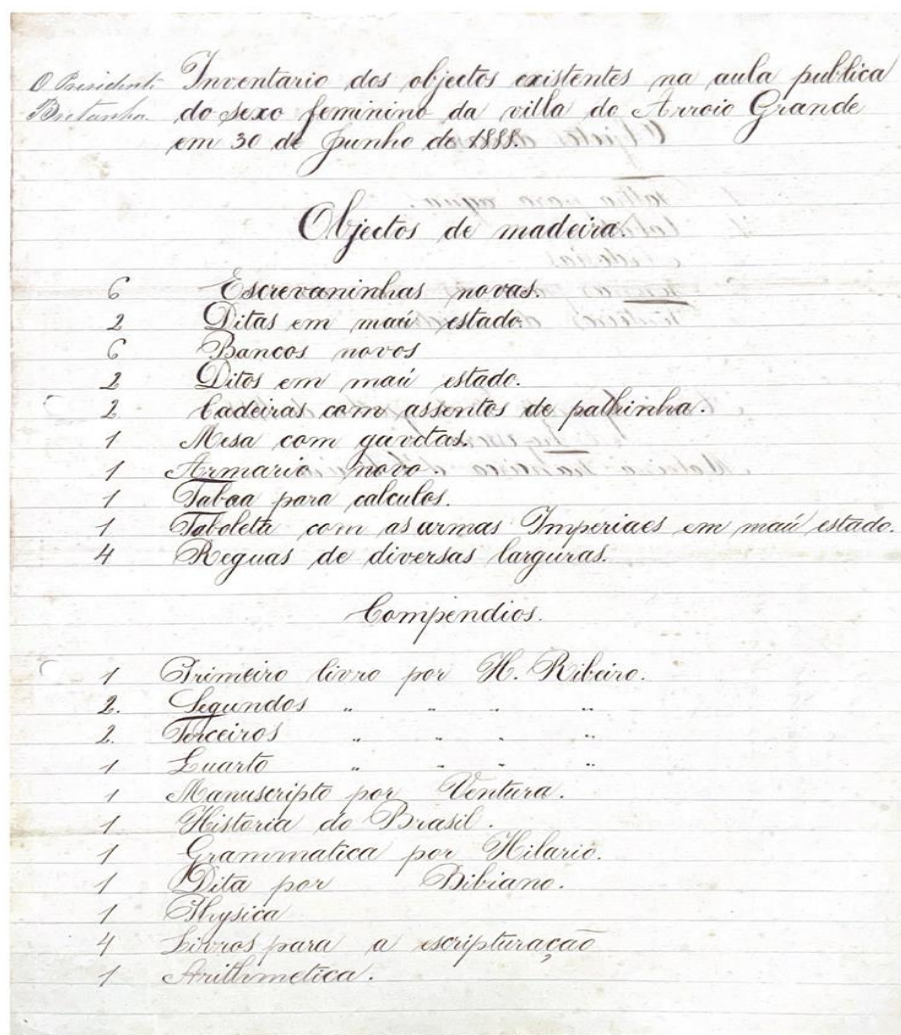 O Presidente
Bretanha.
Inventario dos objectos existentes na aula publica
do sexo feminino da villa do Arroio Grande
em 30 de Junho de 1888.
Objectos de madeira.
6 Escrevaninhas novas.
2 Ditas em maú estado
6 Bancos novos
2 Ditos em maú estado.
2 Cadeiras com assentos de palhinha.
1 Mesa com gavetas.
1 Armario novo
1 Taboa para calculos.
1 Taboleta com as armas Imperiaes em maú estado.
4 Reguas de diversas larguras.
Compendios.
1 Primeiro livro por H. Ribeiro.
2. Segundos " " " "
2. Terceiros " " " "
1 Quarto " " " "
1 Manuscripto por Ventura.
1 Historia do Brasil.
1 Grammatica por Hilario.
1 Dita por Bibiano.
1 Physica
4 Livros para a escripturação
1 Arithmetica.